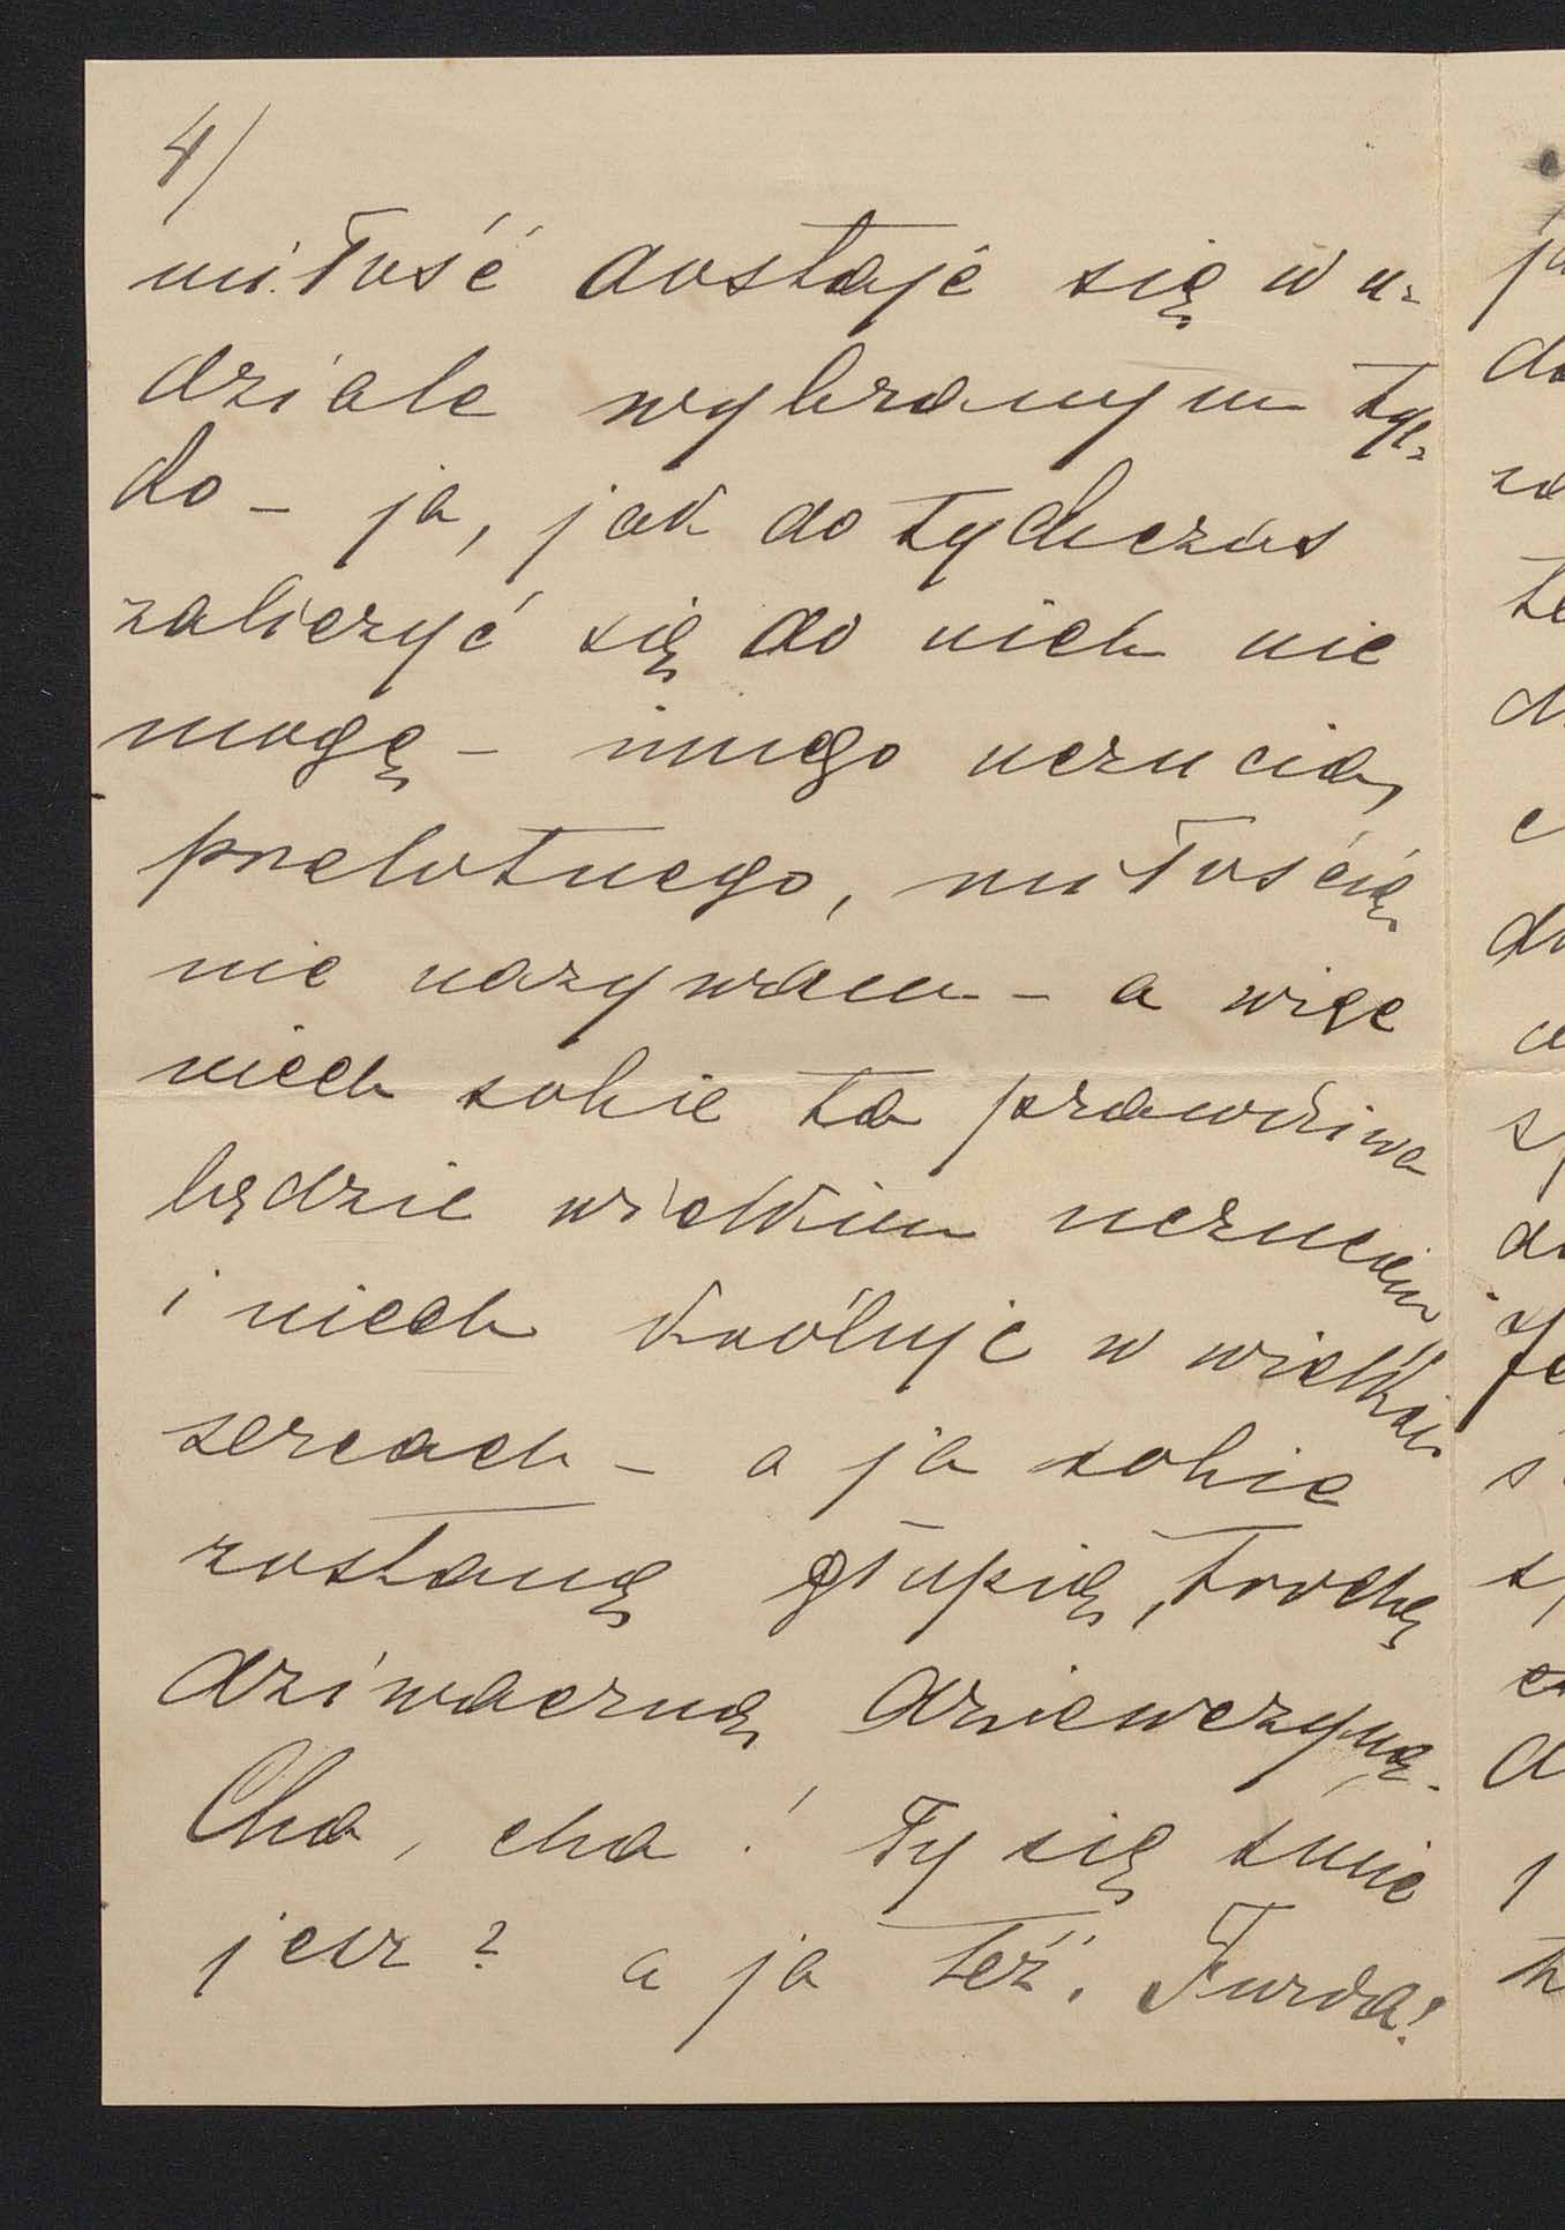 4/
miłość dostaje się w u-
dziale wybranym tyl-
ko - ja, jak do tychczas
zaliczyć się do nich nie
mogę - innego uczucia,
przelotnego, miłością
nie nazywam - a więc
niech sobie ta prawdziwa
będzie wielkim uczuciem
i niech króluje w wielkich
sercach - a ja sobie
zostanę głupią, trochę
dziwaczną dziewczyną.
Cha, cha! Ty się śmie
jesz? a ja też. Furda!